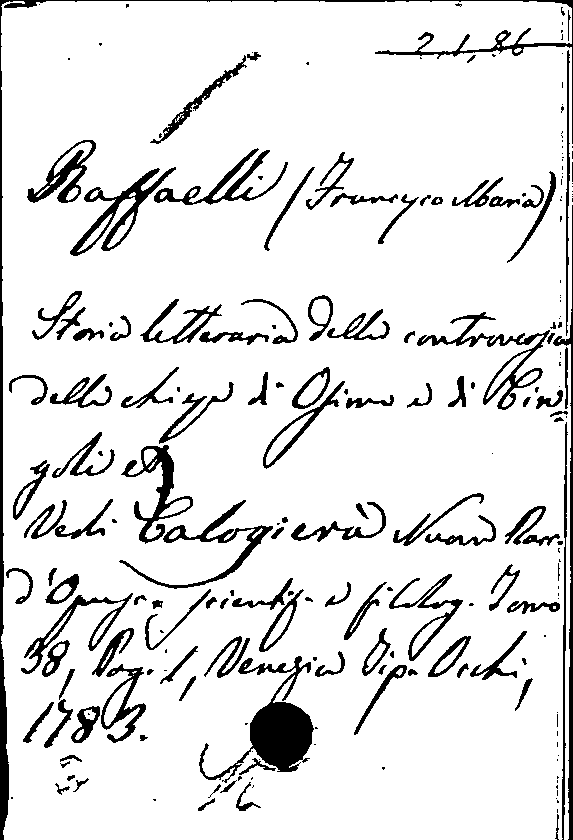 2.1,86
Raffaelli (Francesco Maria)
Storia letteraria della controversia
delle chiese di Osimo e di Cin=
goli
Vedi Calogierà Nuova Racc.
d'Opusc. scientif. e filolog. Tomo
38, Pag. 1, Venezia Tip. Occhi,
1783.